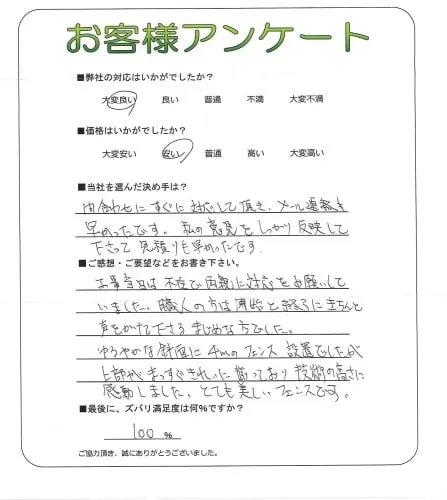 お客様アンケート
■弊社の対応はいかがでしたか？
大変良い 良い 普通 不満 大変不満
■価格はいかがでしたか？
大変安い 安い 普通 高い 大変高い
■当社を選んだ決め手は？
問合わせにすぐに対応して頂き、メール連絡も
早かったです。私の意見をしっかり反映して
下さって見積りも早かったです.
■ご感想・ご要望などをお書き下さい。
工事当日は不在で両親に対応をお願いして
いました。職人の方は開始と終了にきちんと
声をかけて下さるまじめな方でした。
ゆるやかな斜面に4mのフェンス設置でしたが
上部がまっすぐきれいに揃っており技術の高さに
感動しました。とても美しいフェンスです。
■最後に、ズバリ満足度は何％ですか？
100 %
ご協力頂き、誠にありがとうございました。